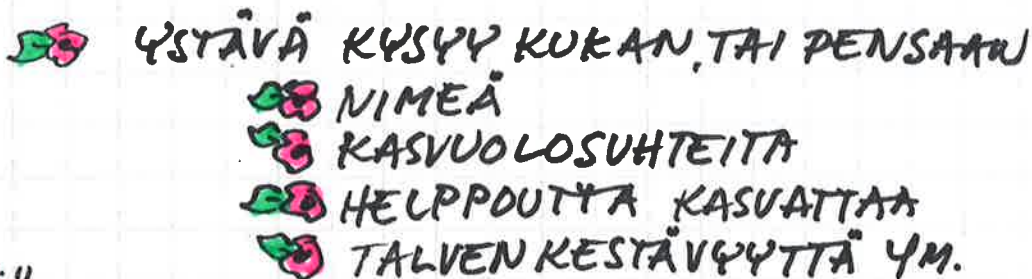 YSTÄVÄ KYSYY KUKAN, TAI PENSAAN
NIMEÄ
KASVUOLOSUHTEITA
HELPPOUTTA KASVATTAA
TALVENKESTÄVYYTTÄ YM.